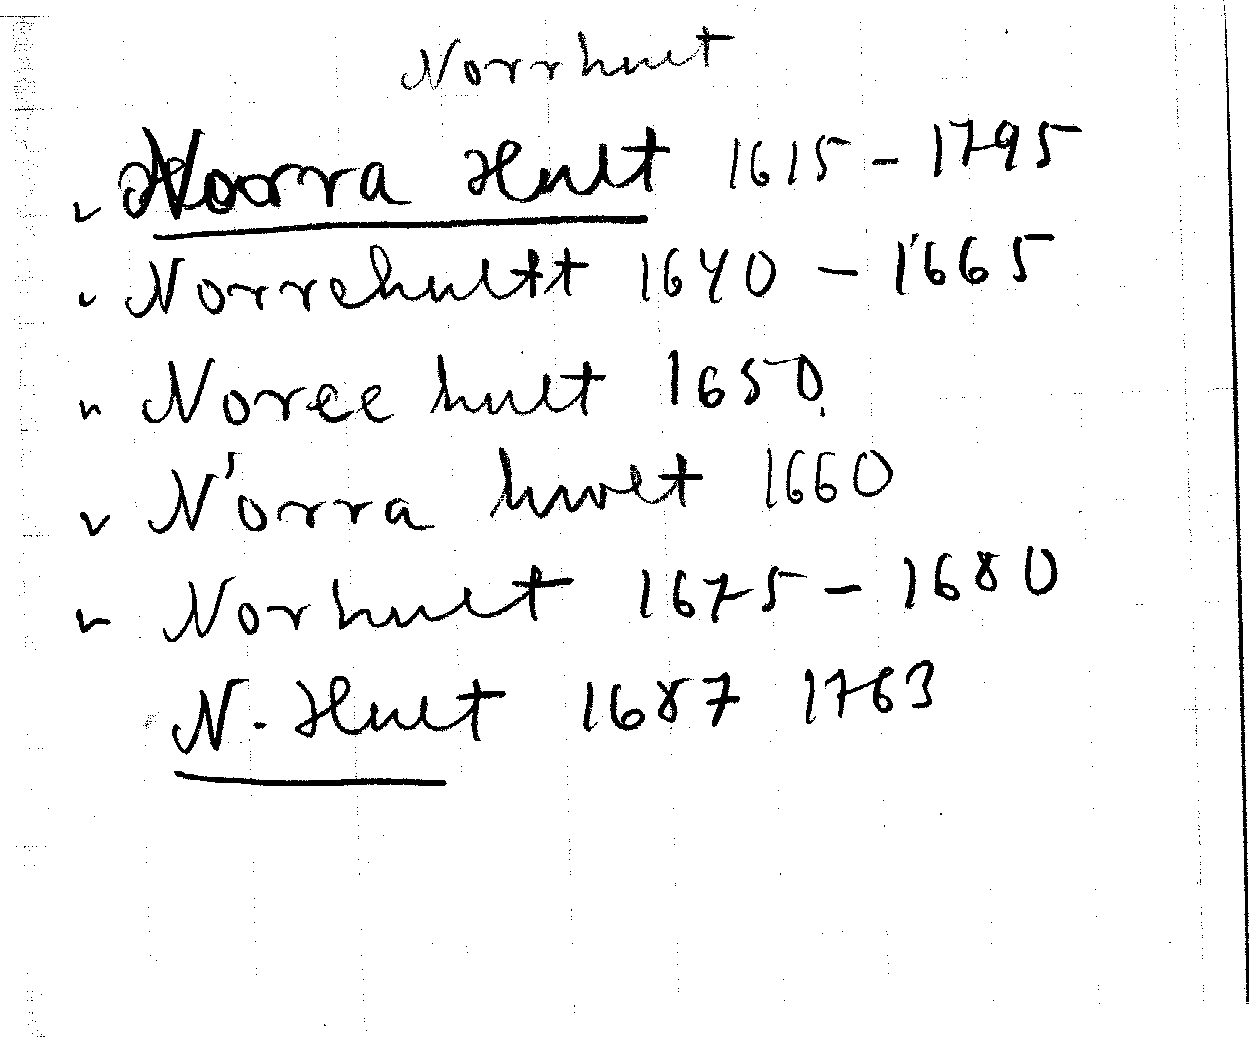 Norrhult
v Norra Hult 1615 - 1795
v Norrehultt 1640 - 1665
v Noree hult 1650
v Norra hwlt 1660
v Norhult 1675 - 1680
N. Hult 1687 1763